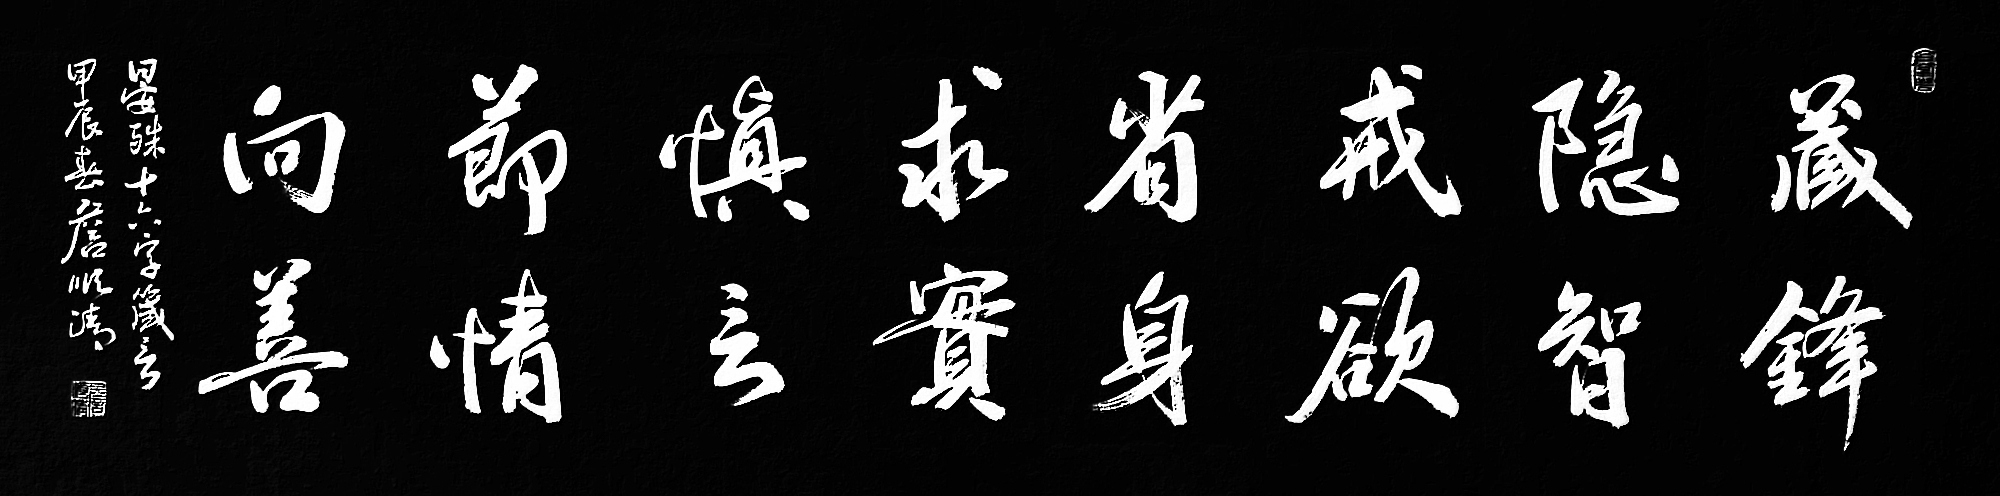 藏鋒
隐智
戒欲
省身
求實
慎言
節情
向善
晏殊十六字箴言
甲辰春詹順清